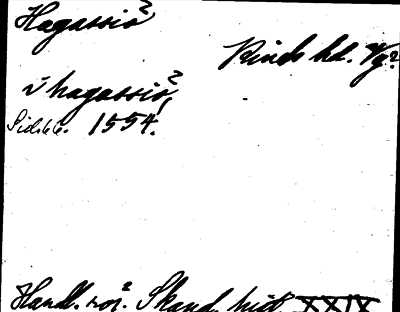 Hagassiö
Kinds hd. Vg?
i hagassiö,
Sid. 66. 1554.
Handl. rör. Skand. hist. XXIX